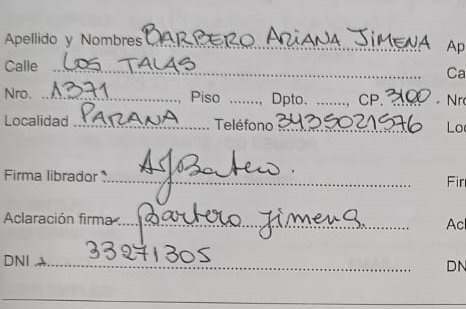 Apellido y Nombres BARBERO ARIANA JIMENA Ap
Calle LOS TALAS Ca
Nro. 1371, Piso ......., Dpto. ......., CP. 3100. Nro
Localidad PARANA Teléfono 3435021576 Lo
Firma librador AJBarbero. Fir
Aclaración firma Barbero Jimena. Acl
DNI 33271305 DN